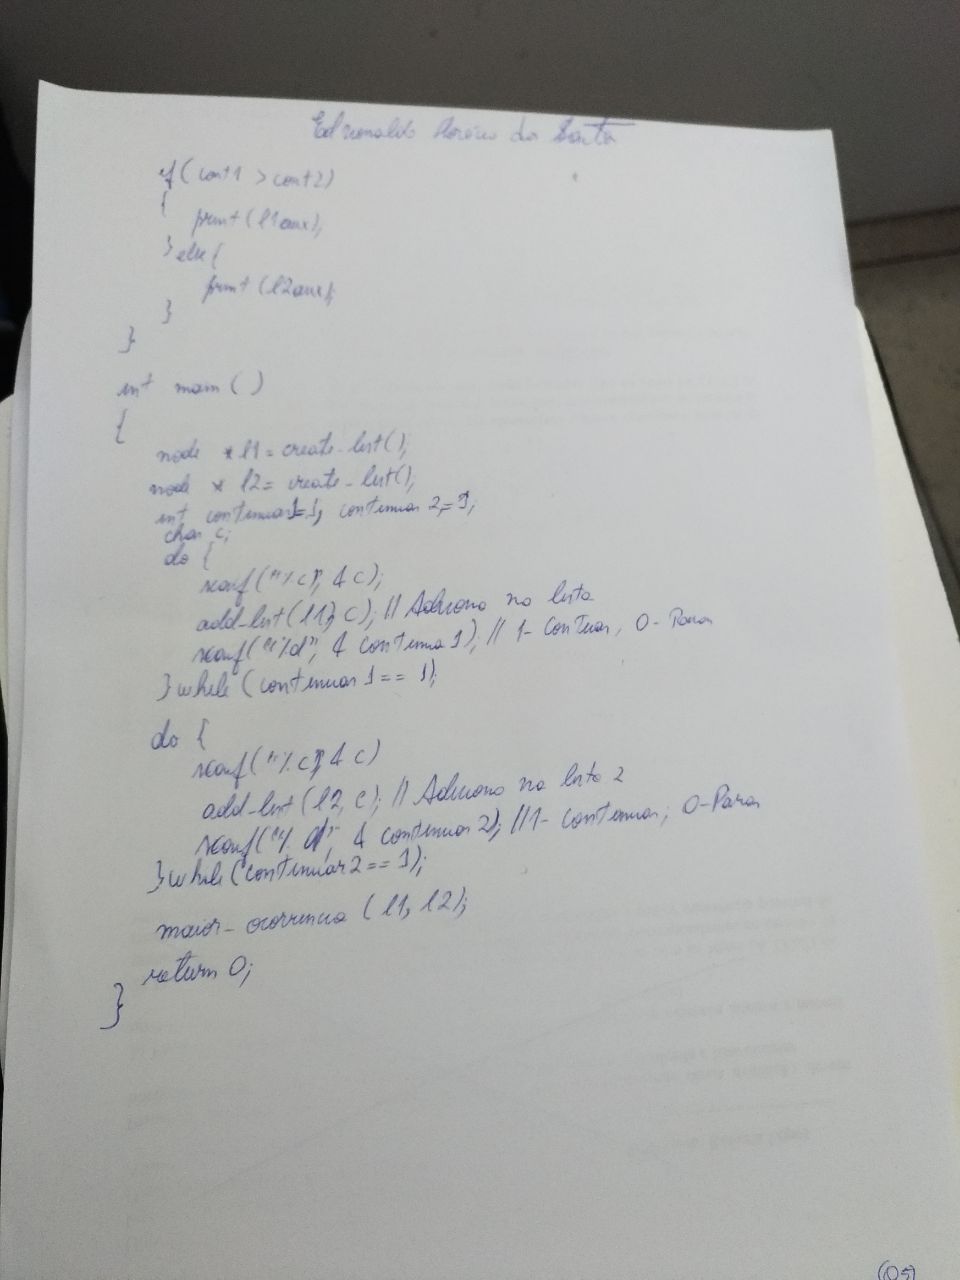 Edmonaldo do Santa
if (cont1 > cont2)
{
print (l1aux);
} else {
print (l2aux);
}
}
int main ()
{
node * l1 = create_list();
node * l2 = create_list();
int continuar1=1, continuar2=1;
char c;
do {
scanf("%c", &c);
add_list(l1, c); // Adiciona na lista
scanf("%d", & continua 1); // 1- Contuar, 0- Parar
} while (continuar 1 == 1);
do {
scanf("%c", &c)
add_list(l2, c); // Adiciona na lista 2
scanf("%d", & continuar 2); // 1- continuar, 0-Parar
} while (continuar 2 == 1);
maior_ocorrencia (l1, l2);
return 0;
}
(05)